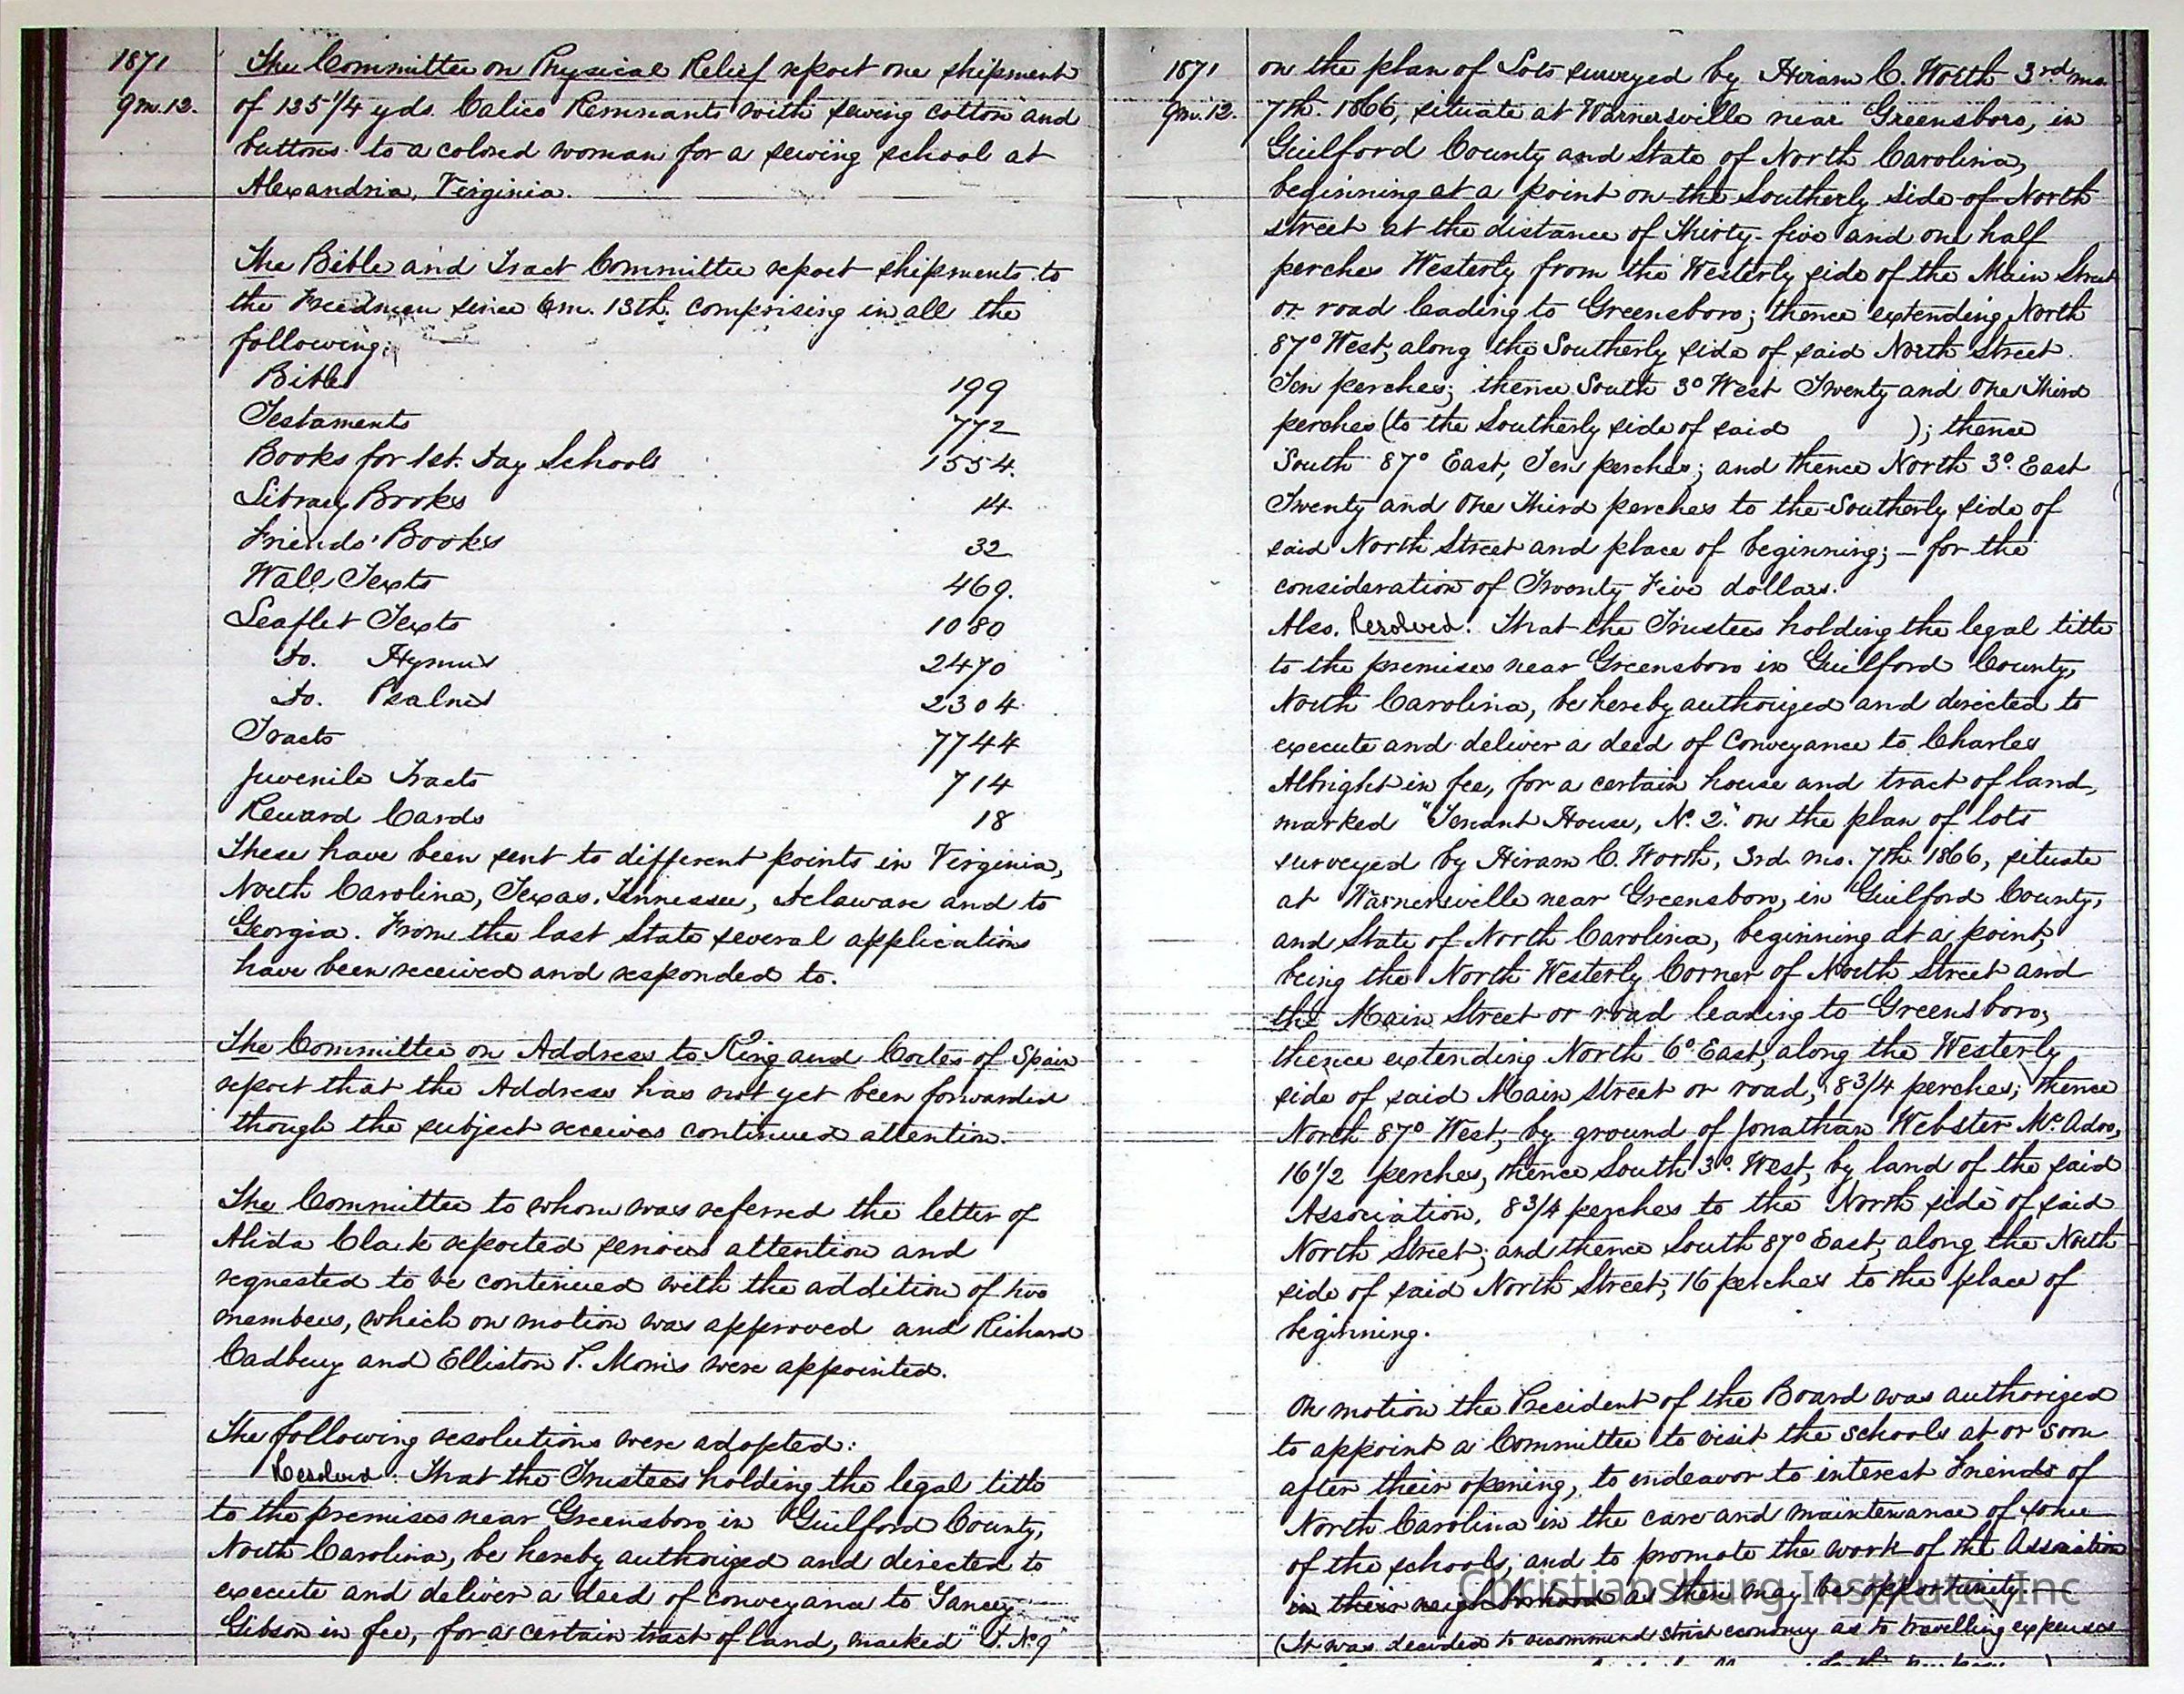 1871
9m.12.
The Committee on Physical Relief report one shipment
of 135 1/4 yds. Calico Remnants with sewing cotton and
buttons to a colored woman for a sewing school at
Alexandria, Virginia.
The Bible and Tract Committee report shipments to
the Freedmen since 6m. 13th. comprising in all the
following;
Bibles 199
Testaments 772
Books for 1st. Day Schools 1554.
Library Books 14
Friends' Books 32
Wall Texts 469.
Leaflet Texts 1080
Do. Hymns 2470
Do. Psalms 2304
Tracts 7744
Juvenile Tracts 714
Reward Cards 18
These have been sent to different points in Virginia,
North Carolina, Texas, Tennessee, Delaware and to
Georgia. From the last State several applications
have been received and responded to.
The Committee on Address to King and Cortes of Spain
report that the Address has not yet been forwarded
though the subject receives continued attention.
The Committee to whom was referred the letter of
Alida Clark reported serious attention and
requested to be continued with the addition of two
members, which on motion was approved and Richard
Cadbury and Elliston P. Morris were appointed.
The following resolutions were adopted:
Resolved: That the Trustees holding the legal title
to the premises near Greensboro in Guilford County,
North Carolina, be hereby authorized and directed to
execute and deliver a deed of conveyance to Yancey
Gibson in fee, for a certain tract of land, marked "J. No 9"
1871
9m.12.
on the plan of Lots surveyed by Hiram C. Worth 3rd mo.
7th. 1866, situate at Warnersville near Greensboro, in
Guilford County and State of North Carolina,
beginning at a point on the Southerly side of North
street at the distance of Thirty-five and one half
perches Westerly from the Westerly side of the Main Street
or road leading to Greensboro; thence extending North
87° West, along the Southerly side of said North Street
Ten perches; thence South 3° West Twenty and One Third
perches (to the Southerly side of said ); thence
South 87° East, Ten perches; and thence North 3° East
Twenty and One Third perches to the Southerly side of
said North Street and place of beginning; – for the
consideration of Twenty Five dollars.
Also. Resolved: That the Trustees holding the legal title
to the premises near Greensboro in Guilford County,
North Carolina, be hereby authorized and directed to
execute and deliver a deed of Conveyance to Charles
Albright in fee, for a certain house and tract of land,
marked "Tenant House, No. 2." on the plan of lots
surveyed by Hiram C. Worth, 3rd. mo. 7th 1866, situate
at Warnersville near Greensboro, in Guilford County,
and State of North Carolina, beginning at a point,
being the North Westerly Corner of North Street and
the Main Street or road leading to Greensboro,
thence extending North 6° East, along the Westerly
side of said Main Street or road, 8 3/4 perches; thence
North 87° West, by ground of Jonathan Webster McAdoo,
16 1/2 perches, thence South 3° West, by land of the said
Association, 8 3/4 perches to the North side of said
North Street; and thence South 87° East, along the North
side of said North Street, 16 perches to the place of
beginning.
On motion the President of the Board was authorized
to appoint a Committee to visit the schools at or soon
after their opening, to endeavor to interest Friends of
North Carolina in the care and maintenance of some
of the schools, and to promote the work of the Association
in their neighborhood as there may be opportunity.
Christiansburg Institute, Inc
(It was decided to recommend strict economy as to travelling expenses